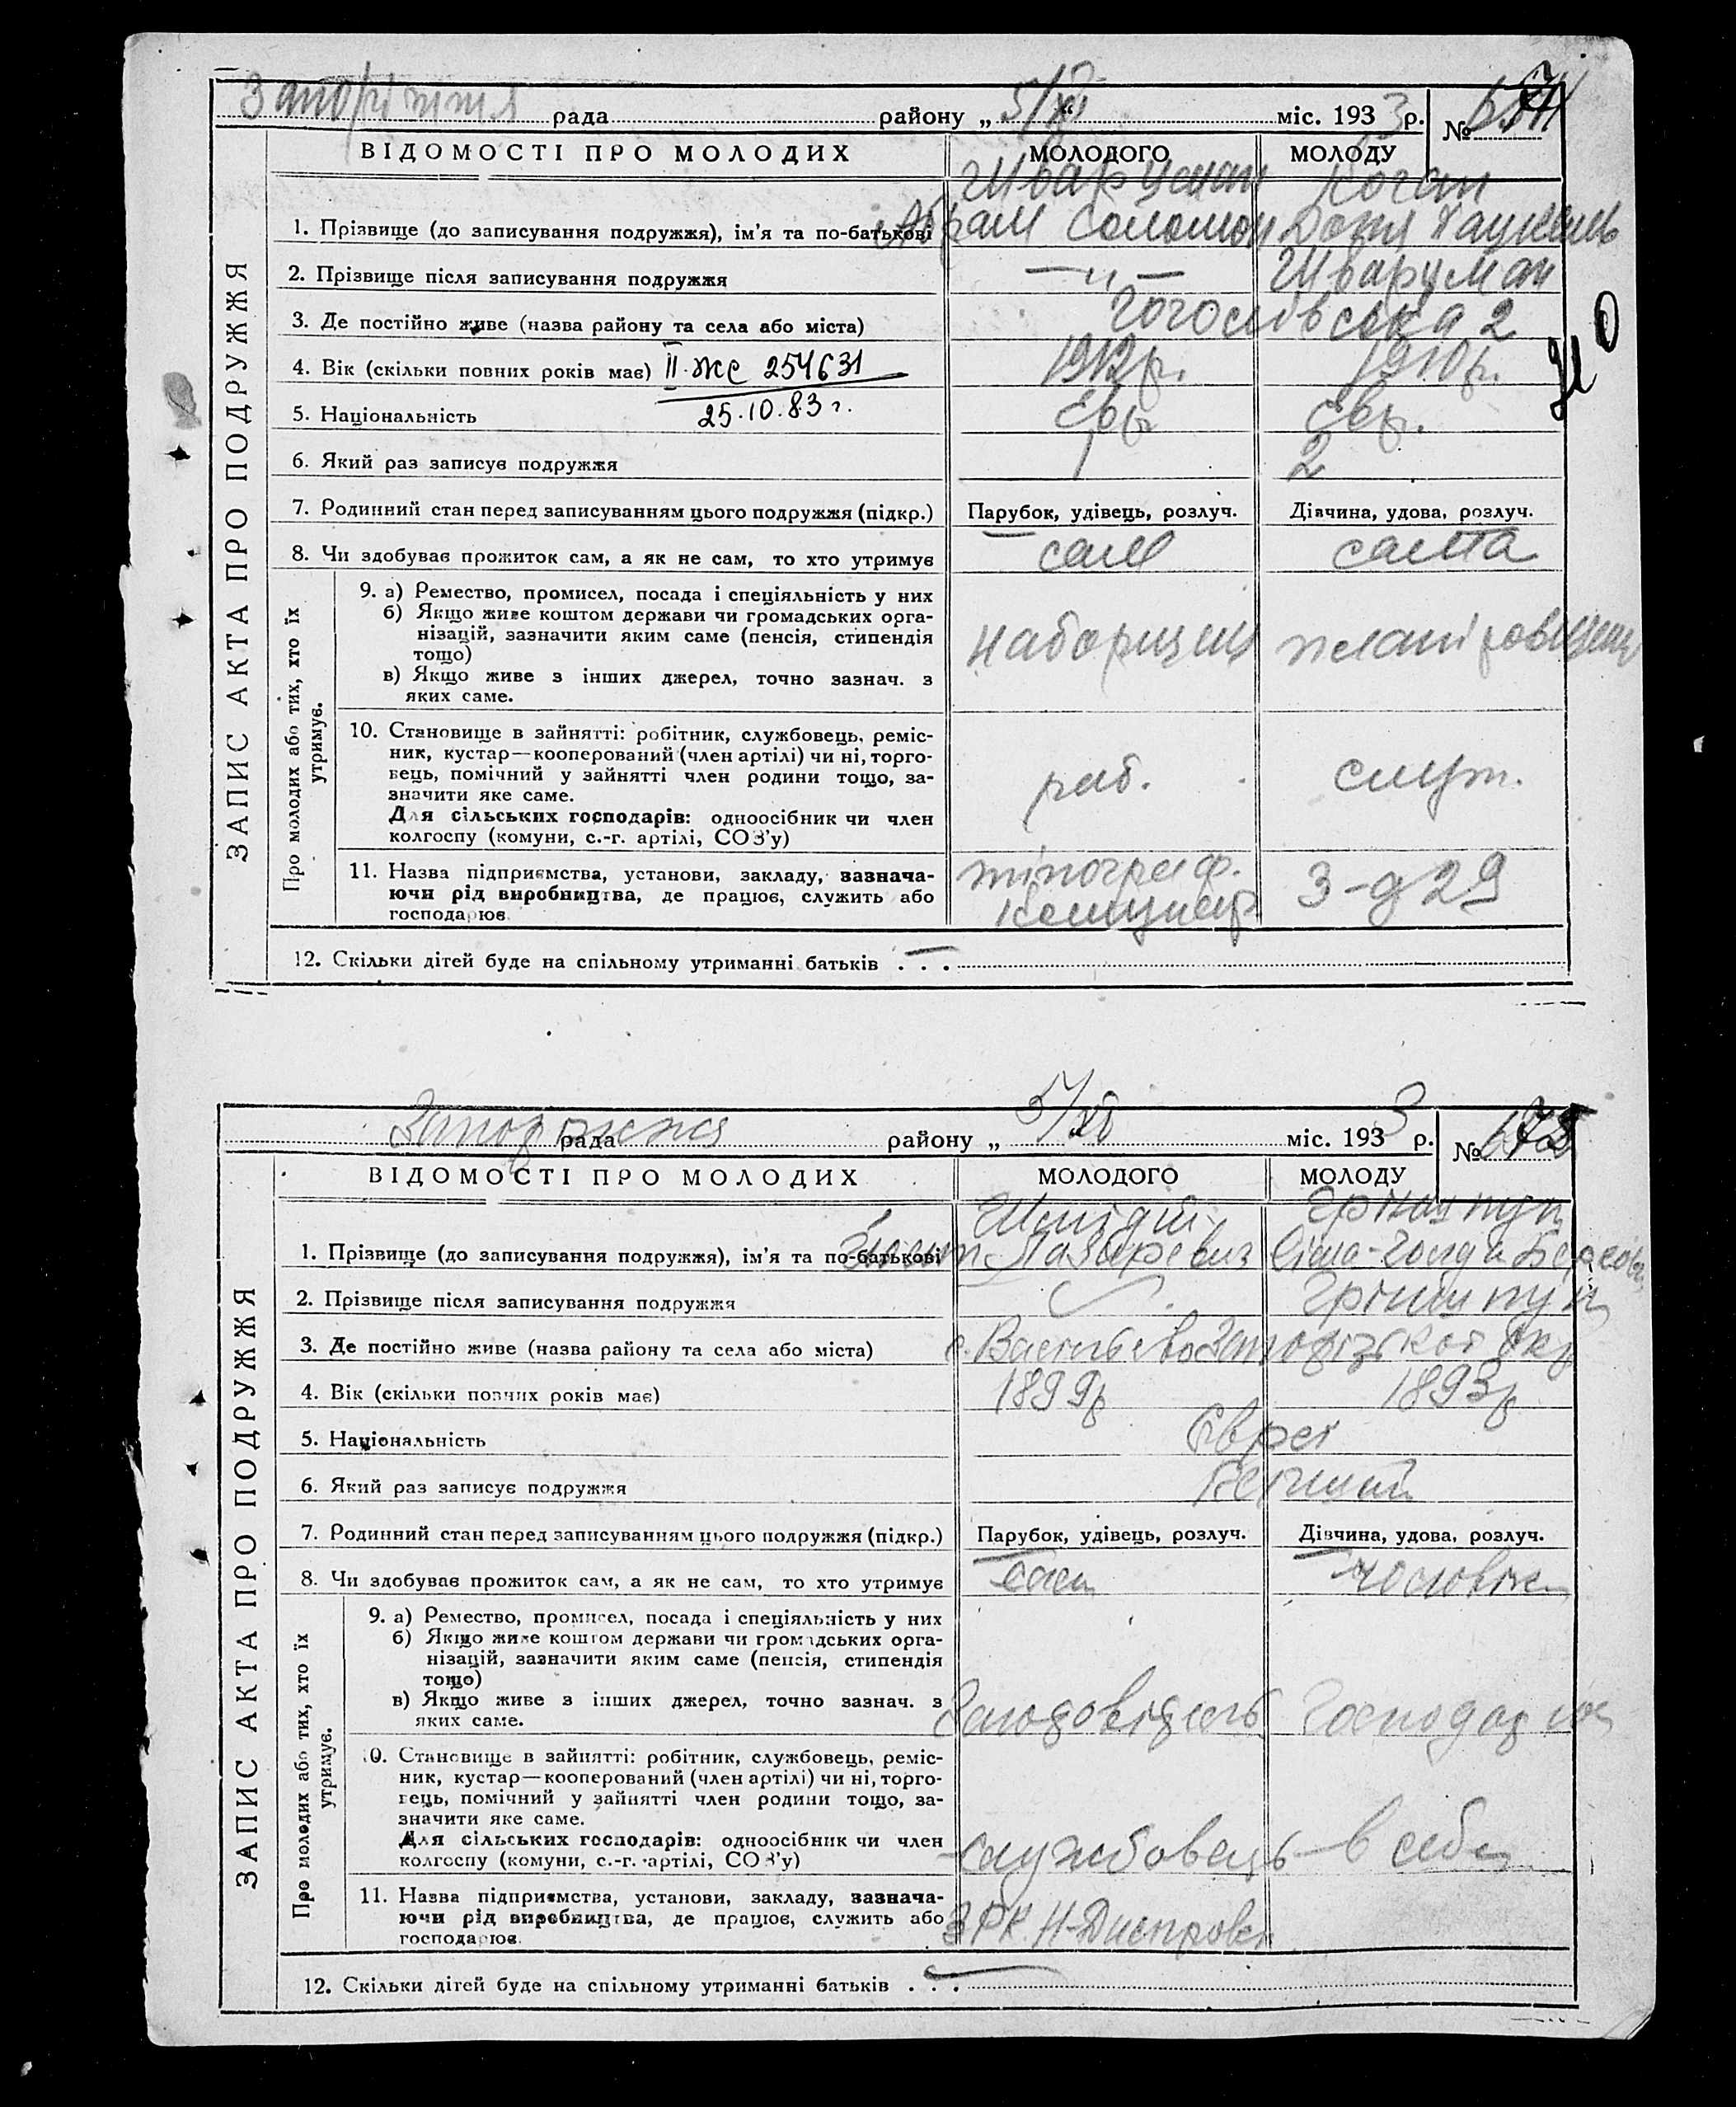 Запоріжжя рада району „ 5/XI “ міс. 1933 р. №
ВІДОМОСТІ ПРО МОЛОДИХ МОЛОДОГО МОЛОДУ
ЗАПИС АКТА ПРО ПОДРУЖЖЯ
Шварцман Коган
1. Прізвище (до записування подружжя), ім’я та по-батькові Абрам Соломон
2. Прізвище після записування подружжя —„— Шварцман
3. Де постійно живе (назва району та села або міста) 2
4. Вік (скільки повних років має) II-же 254631 1912 р. 1910 р.
5. Національність 25.10.83 г. євр. євр.
6. Який раз записує подружжя 1 2
7. Родинний стан перед записуванням цього подружжя (підкр.) Парубок, удівець, розлуч. Дівчина, удова, розлуч.
8. Чи здобував прожиток сам, а як не сам, то хто утримує сам сама
Про молодих або тих, хто їх утримує.
9. а) Ремество, промисел, посада і спеціяльність у них
б) Якщо живе коштом держави чи громадських орга-
нізацій, зазначити яким саме (пенсія, стипендія
тощо) наборщик
в) Якщо живе з інших джерел, точно зазнач. з
яких саме.
10. Становище в зайнятті: робітник, службовець, реміс-
ник, кустар—кооперований (член артілі) чи ні, торго-
вець, помічний у зайнятті член родини тощо, за-
значити яке саме. раб. служ.
Для сільських господарів: одноосібник чи член
колгоспу (комуни, с.-г. артілі, СОЗ’у)
11. Назва підприємства, установи, закладу, зазнача- типограф.
ючи рід виробництва, де працює, служить або З-д 29
господарює Комунар
12. Скільки дітей буде на спільному утриманні батьків . . . —
Запоріжжя рада району „ 5/XI міс. 1933 р. №
ВІДОМОСТІ ПРО МОЛОДИХ МОЛОДОГО МОЛОДУ
ЗАПИС АКТА ПРО ПОДРУЖЖЯ
Гріншпун
1. Прізвище (до записування подружжя), ім’я та по-батькові Лазаревич Сіма-Голда
2. Прізвище після записування подружжя Гріншпун
3. Де постійно живе (назва району та села або міста) с. Запорізької окр
4. Вік (скільки повних років має) 1899р 1893р
5. Національність Євреї
6. Який раз записує подружжя Перший
7. Родинний стан перед записуванням цього подружжя (підкр.) Парубок, удівець, розлуч. Дівчина, удова, розлуч.
8. Чи здобував прожиток сам, а як не сам, то хто утримує сам чоловік
Про молодих або тих, хто їх утримує.
9. а) Ремество, промисел, посада і спеціяльність у них
б) Якщо живе коштом держави чи громадських орга-
нізацій, зазначити яким саме (пенсія, стипендія
тощо)
в) Якщо живе з інших джерел, точно зазнач. з
яких саме.
10. Становище в зайнятті: робітник, службовець, реміс-
ник, кустар—кооперований (член артілі) чи ні, торго-
вець, помічний у зайнятті член родини тощо, за-
значити яке саме.
Для сільських господарів: одноосібник чи член
колгоспу (комуни, с.-г. артілі, СОЗ’у) службовець в себе
11. Назва підприємства, установи, закладу, зазнача-
ючи рід виробництва, де працює, служить або ЗРК
господарює
12. Скільки дітей буде на спільному утриманні батьків . . . —